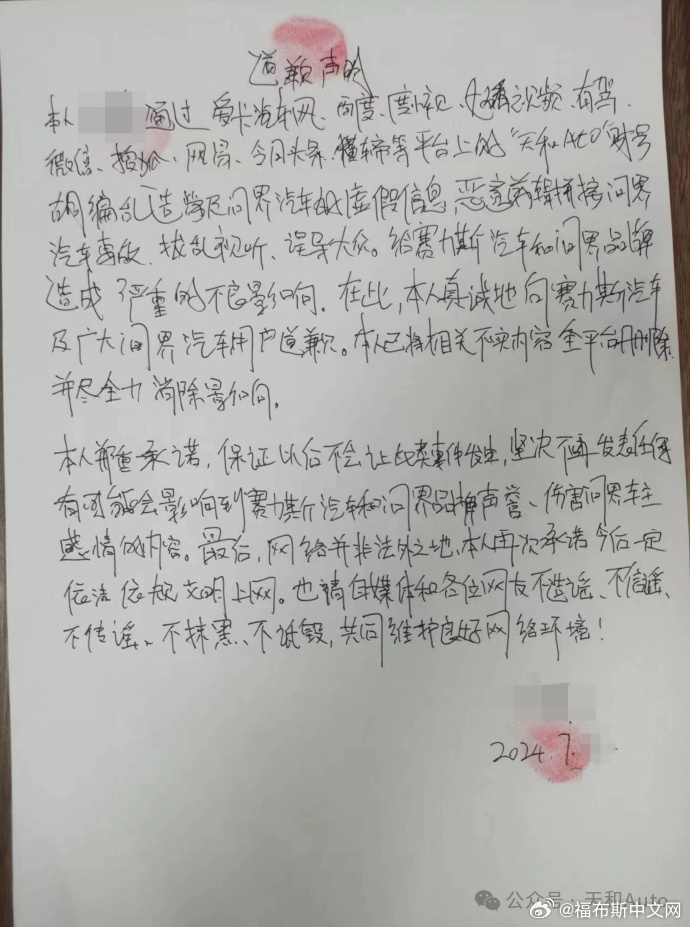 道歉声明
本人 通过 爱卡汽车网、百度、度小视、好看视频、有驾、
微信、搜狐、网易、今日头条、懂车帝等平台上的“天和Auto”账号
胡编乱造涉及问界汽车的虚假信息,恶意剪辑拼接问界
汽车事故、扰乱视听、误导大众。给赛力斯汽车和问界品牌
造成严重的不良影响。在此,本人真诚地向赛力斯汽车
及广大问界汽车用户道歉。本人已将相关不实内容全平台删除,
并尽全力消除影响。
本人郑重承诺,保证以后不会让此类事件发生,坚决不再发表任何
有可能会影响到赛力斯汽车和问界品牌声誉、伤害问界车主
感情的内容。最后,网络并非法外之地,本人再次承诺今后一定
依法依规文明上网。也请自媒体和各位网友不造谣、不信谣、
不传谣、不抹黑、不诋毁,共同维护良好网络环境!
2024.7.
公众号·天和Auto
@福布斯中文网